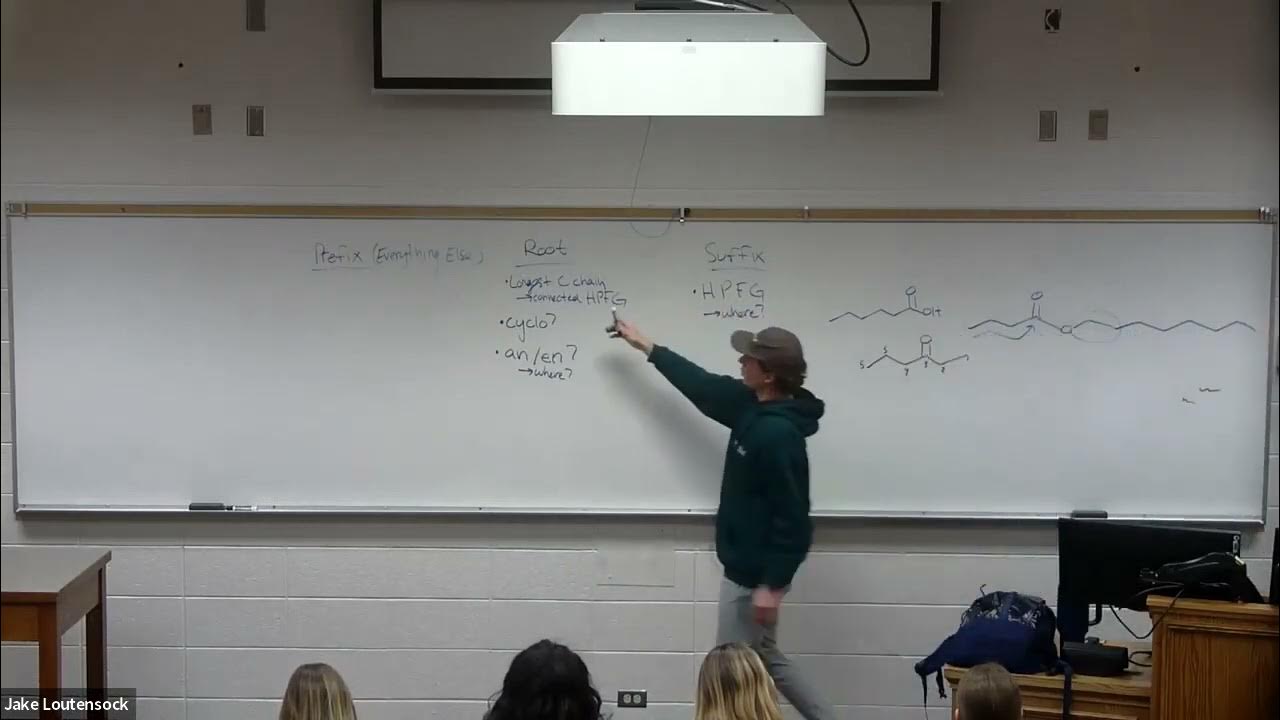 Prefix (Everything Else)
Root
• Longest C chain
→ connected HPFG
• cyclo?
• an/en?
→ where?
Suffix
• HPFG
→ where?
O
OH
O
O
O
S
S
Jake Loutensock